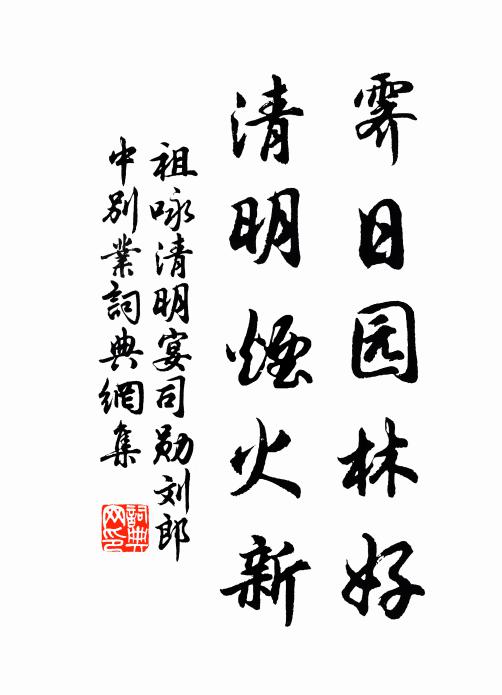 霁日园林好
清明煙火新
祖咏清明宴司勋刘郎
中别業詞典網集
詞典网印